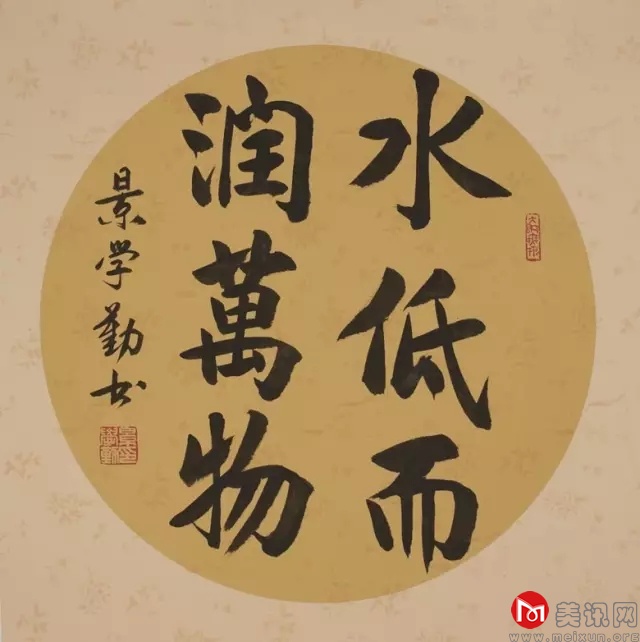 水低而
润萬物
景学勤书
美讯网
www.meixun.org